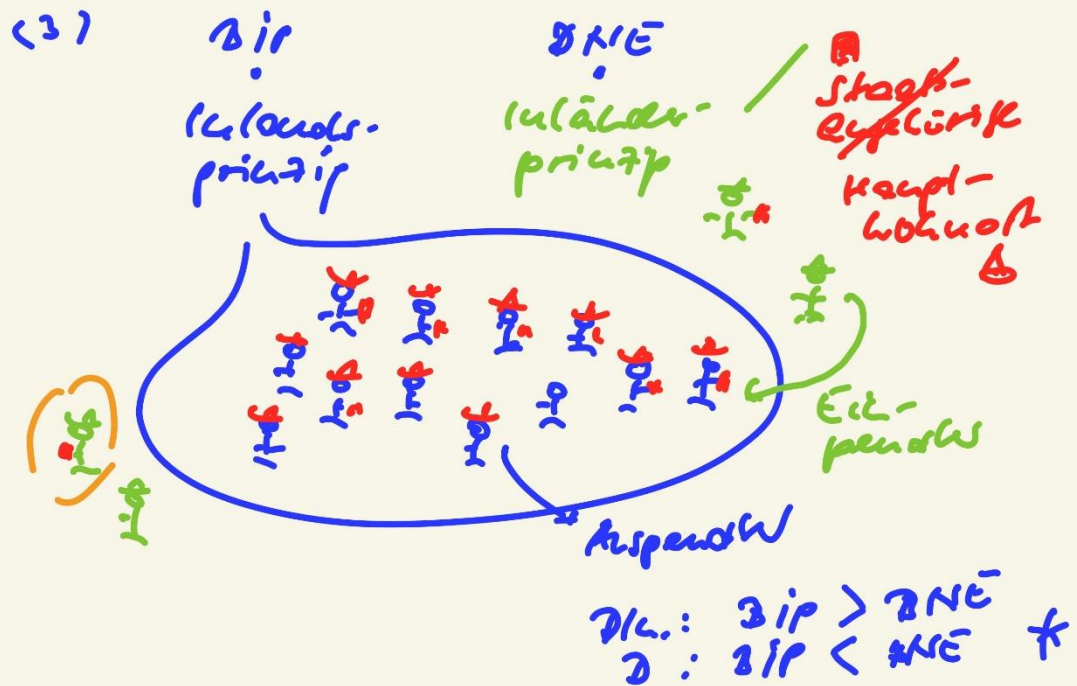 (3) BiP BNE
Inlands-
prinzip
Inländer-
prinzip
Staats-
angehörigk
Haupt-
wohnort
Ein-
pendler
Auspendler
BiP > BNE
D : BiP < BNE *